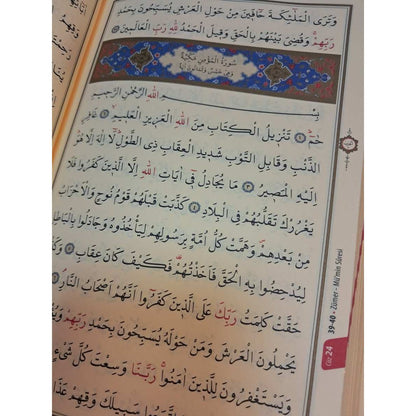 وَتَرَى الْمَلٰٓئِكَةَ حَٓافّ۪ينَ مِنْ حَوْلِ الْعَرْشِ يُسَبِّحُونَ بِحَمْدِ
رَبِّهِمْۚ وَقُضِيَ بَيْنَهُمْ بِالْحَقِّ وَق۪يلَ الْحَمْدُ لِلّٰهِ رَبِّ الْعَالَم۪ينَ
سُورَةُ الْمُؤْمِنِ مَكِّيَّةٌ
وَهِيَ خَمْسٌ وَثَمَانُونَ اٰيَةً
بِسْمِ اللّٰهِ الرَّحْمٰنِ الرَّح۪يمِ
حٰمٓۜ ﴿١﴾ تَنْز۪يلُ الْكِتَابِ مِنَ اللّٰهِ الْعَز۪يزِ الْعَل۪يمِۙ ﴿٢﴾ غَافِرِ
الذَّنْبِ وَقَابِلِ التَّوْبِ شَد۪يدِ الْعِقَابِ ذِي الطَّوْلِۜ لَٓا اِلٰهَ اِلَّا هُوَۜ
اِلَيْهِ الْمَص۪يرُ ﴿٣﴾ مَا يُجَادِلُ ف۪ٓي اٰيَاتِ اللّٰهِ اِلَّا الَّذ۪ينَ كَفَرُوا فَلَا
يَغْرُرْكَ تَقَلُّبُهُمْ فِي الْبِلَادِ ﴿٤﴾ كَذَّبَتْ قَبْلَهُمْ قَوْمُ نُوحٍ وَالْاَحْزَابُ
مِنْ بَعْدِهِمْۖ وَهَمَّتْ كُلُّ اُمَّةٍ بِرَسُولِهِمْ لِيَأْخُذُوهُ وَجَادَلُوا بِالْبَاطِلِ
لِيُدْحِضُوا بِهِ الْحَقَّ فَاَخَذْتُهُمْ۠ فَكَيْفَ كَانَ عِقَابِ ﴿٥﴾
حَقَّتْ كَلِمَتُ رَبِّكَ عَلَى الَّذ۪ينَ كَفَرُٓوا اَنَّهُمْ اَصْحَابُ النَّارِۢ
يَحْمِلُونَ الْعَرْشَ وَمَنْ حَوْلَهُ يُسَبِّحُونَ بِحَمْدِ رَبِّهِمْ
وَيَسْتَغْفِرُونَ لِلَّذ۪ينَ اٰمَنُواۚ رَبَّنَا وَسِعْتَ كُلَّ شَيْءٍ
تَابُوا وَاتَّبَعُوا سَب۪يلَكَ وَقِهِمْ عَذَابَ
39-40 - Zümer - Mü'min Sûresi
Cüz 24